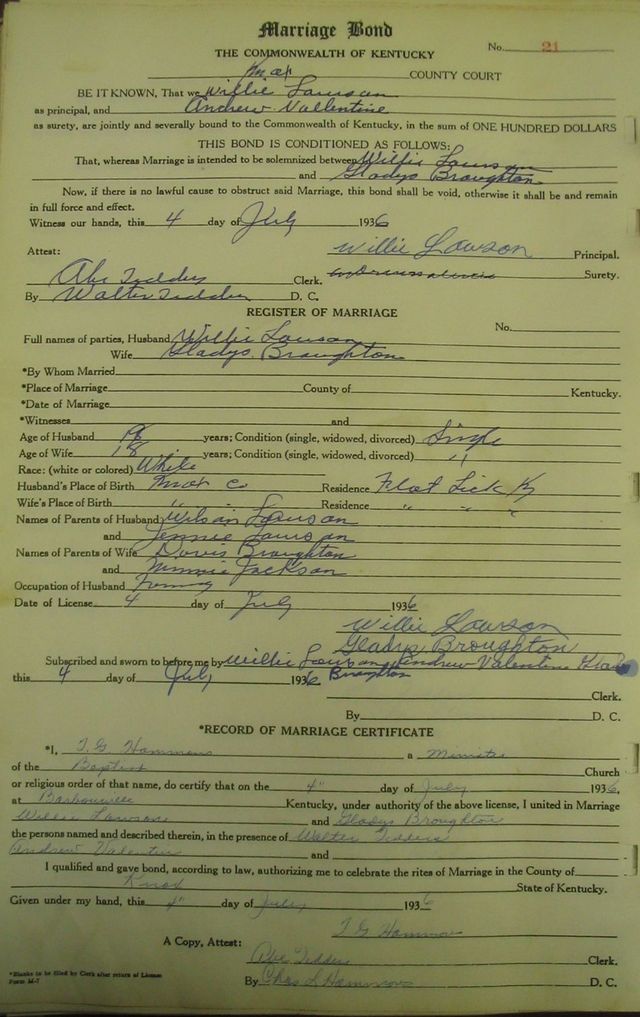 Marriage Bond
THE COMMONWEALTH OF KENTUCKY
No. 21
Knox COUNTY COURT
BE IT KNOWN, That we Willie Lawson
as principal, and Andrew Vallentine
as surety, are jointly and severally bound to the Commonwealth of Kentucky, in the sum of ONE HUNDRED DOLLARS
THIS BOND IS CONDITIONED AS FOLLOWS:
That, whereas Marriage is intended to be solemnized between Willie Lawson
and Gladys Broughton
Now, if there is no lawful cause to obstruct said Marriage, this bond shall be void, otherwise it shall be and remain
in full force and effect.
Witness our hands, this 4 day of July 1936
Attest: Willie Lawson Principal.
Abe Tedders Clerk. Surety.
By Walter Tedders D. C.
REGISTER OF MARRIAGE
No.
Full names of parties, Husband Willie Lawson
Wife Gladys Broughton
*By Whom Married
*Place of Marriage County of Kentucky.
*Date of Marriage
*Witnesses and
Age of Husband years; Condition (single, widowed, divorced) Single
Age of Wife 18 years; Condition (single, widowed, divorced) "
Race: (white or colored) White
Husband's Place of Birth Knox Co Residence Flat Lick Ky
Wife's Place of Birth " " Residence " " "
Names of Parents of Husband Wilson Lawson
and Jennie Lawson
Names of Parents of Wife Davis Broughton
and Minnie Jackson
Occupation of Husband Farming
Date of License 4 day of July 1936
Willie Lawson
Gladys Broughton
Subscribed and sworn to before me by Willie Lawson Andrew Valentine Gladys
this 4 day of July 1936 Broughton
Clerk.
By D. C.
*RECORD OF MARRIAGE CERTIFICATE
*I, T. G. Hammons a Minister
of the Baptist Church
or religious order of that name, do certify that on the 4" day of July 1936,
at Barbourville Kentucky, under authority of the above license, I united in Marriage
Willie Lawson and Gladys Broughton
the persons named and described therein, in the presence of Walter Tedders
Andrew Valentin and
I qualified and gave bond, according to law, authorizing me to celebrate the rites of Marriage in the County of
Knox State of Kentucky.
Given under my hand, this 4" day of July 1936
T G Hammons
A Copy, Attest:
Abe Tedders Clerk.
By Chas S Hammons D. C.
*Blanks to be filled by Clerk after return of License
Form M-7